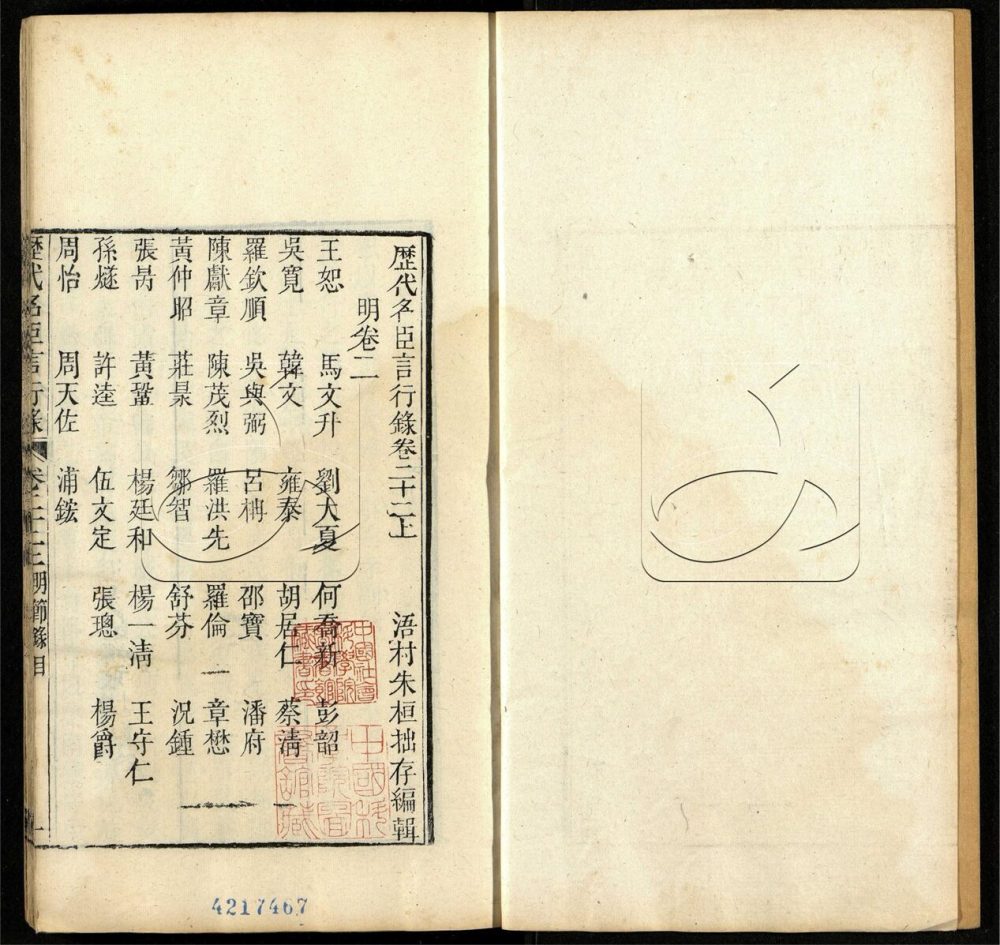 歷代名臣言行錄卷二十二上 浯村朱桓拙存編輯
明卷二
王恕 馬文升 劉大夏 何喬新 彭韶
吳寬 韓文 雍泰 胡居仁 蔡淸
羅欽順 吳與弼 呂柟 邵寶 潘府
陳獻章 陳茂烈 羅洪先 羅倫 章懋
黃仲昭 莊㫤 鄒智 舒芬 況鍾
張昺 黃鞏 楊廷和 楊一淸 王守仁
孫燧 許逵 伍文定 張璁 楊爵
周怡 周天佐 浦鋐
歷代名臣言行錄 卷二十二 明節錄目 一
4217467